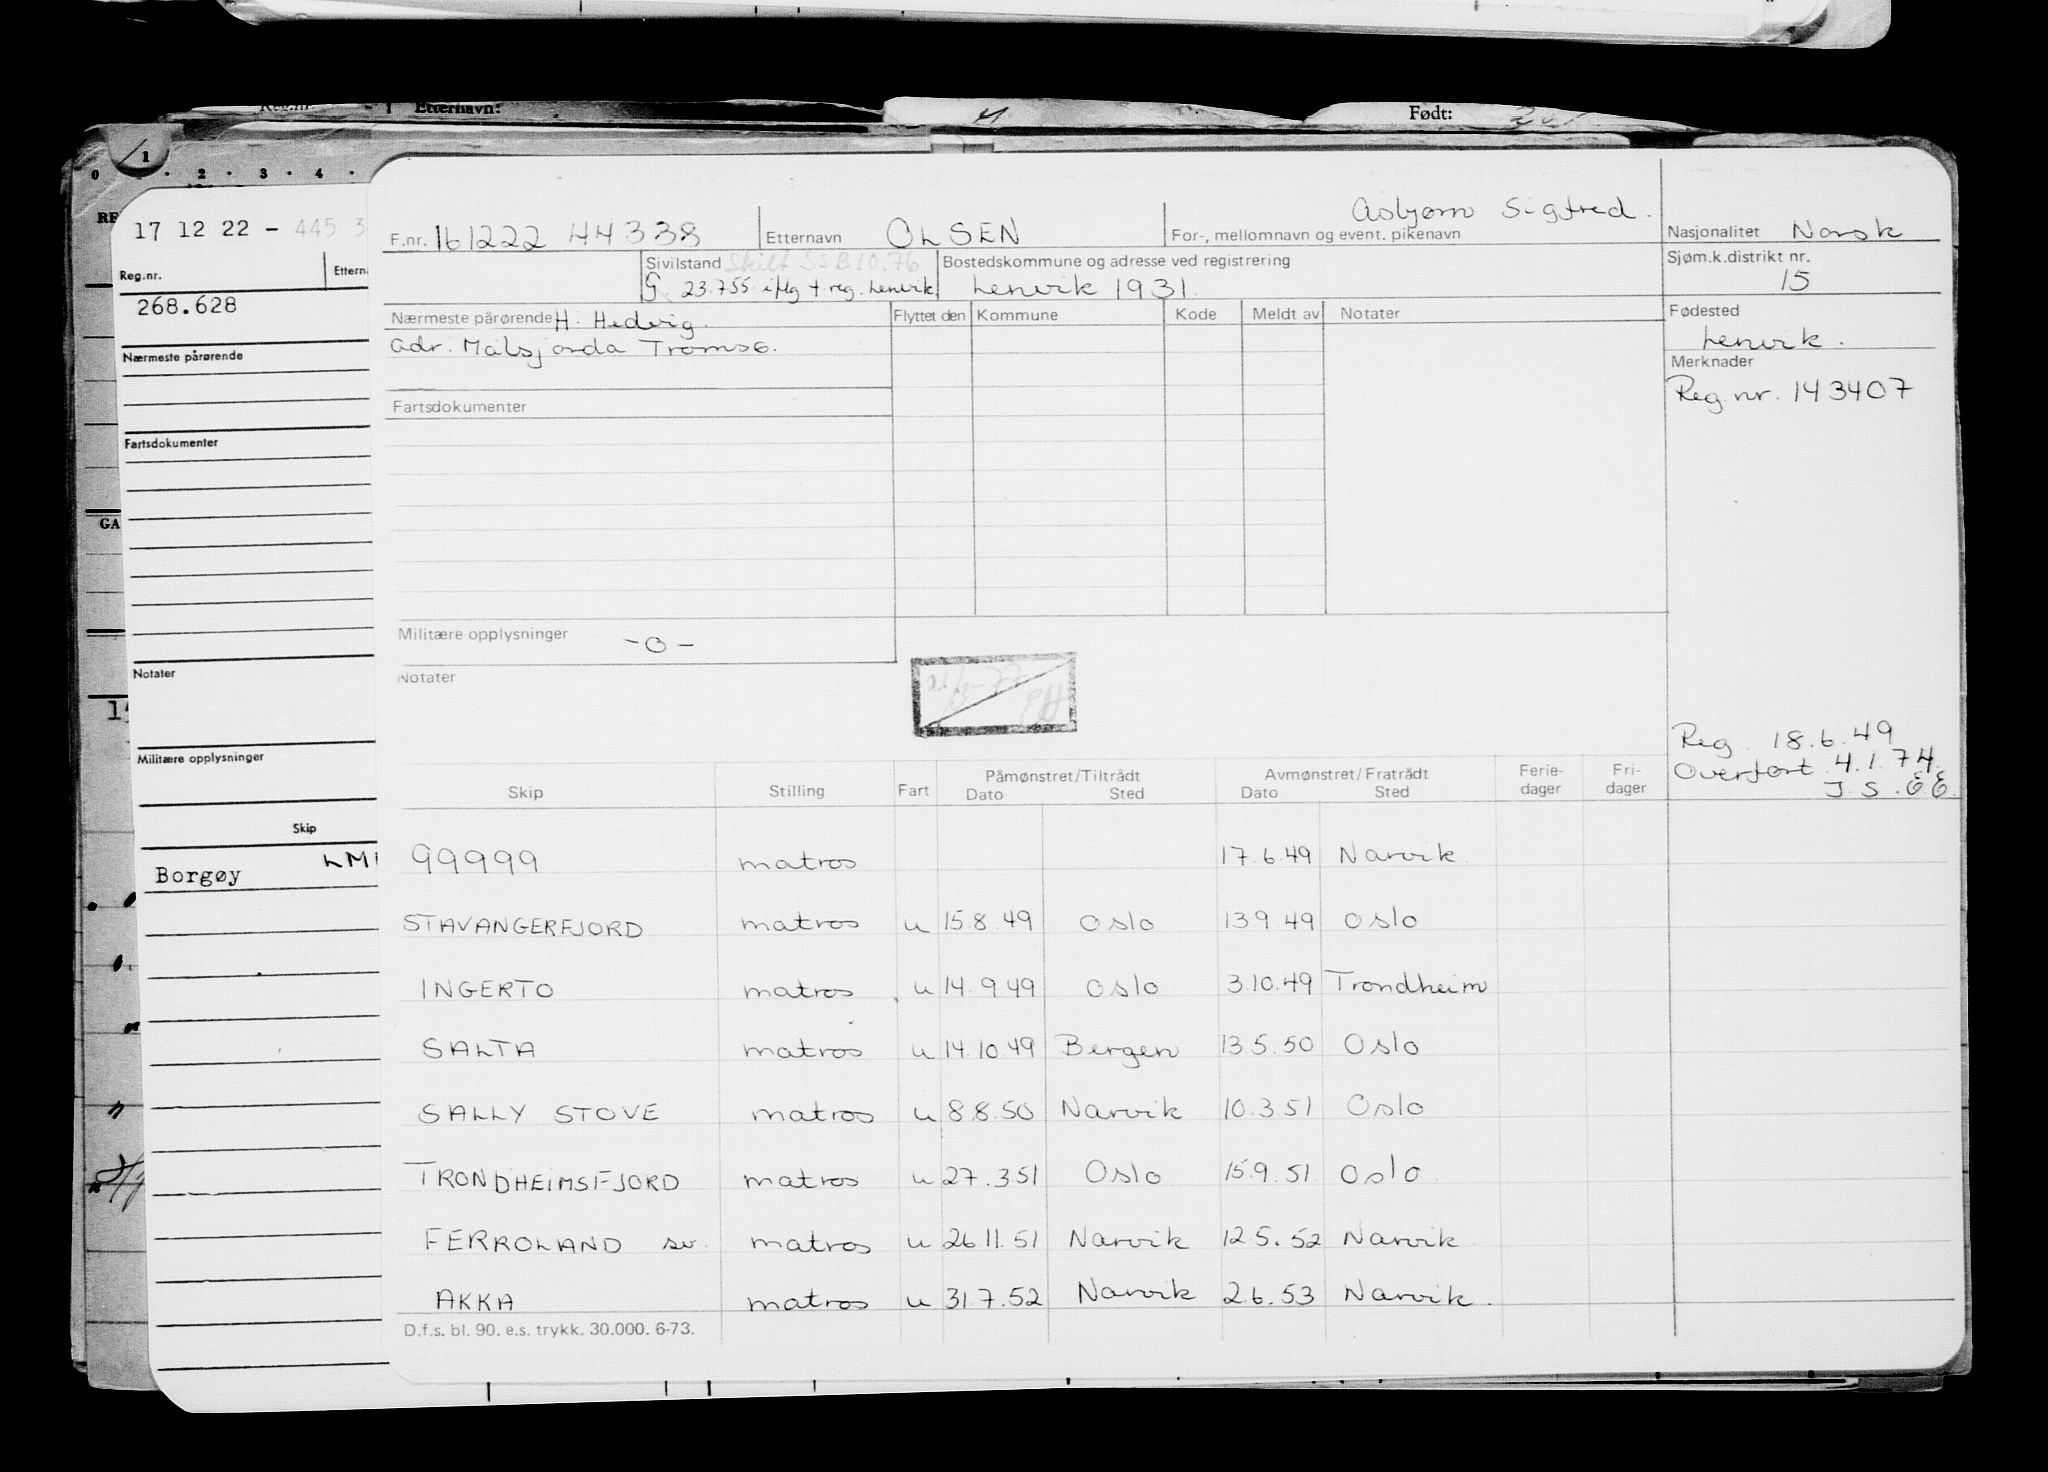 Reg.nr. Etternavn: Født:
0 1 2 3 4
17 12 22 - 445 3
Reg.nr. Ettern
268.628
Nærmeste pårørende
Fartsdokumenter
GA
Notater
Militære opplysninger
Skip
Borgøy
F.nr. 161222 44338 Etternavn OLSEN Asbjørn Sigfred.
For-, mellomnavn og event. pikenavn
Nasjonalitet Norsk
Sivilstand Skilt SSB 10.76 Bostedskommune og adresse ved registrering
Sjøm.k.distrikt nr.
15
G. 23.755 iflg + reg. Lenvik Lenvik 1931.
Nærmeste pårørende H: Hedvig. Flyttet den Kommune Kode Meldt av Notater
Fødested
Lenvik.
adr. Målsjorda Tromsø.
Merknader
Reg.nr. 143407
Fartsdokumenter
Militære opplysninger -0-
Notater
Reg. 18.6.49
Overført 4.1.74.
J.S.EE.
Skip Stilling Fart Påmønstret/Tiltrådt Avmønstret/Fratrådt Ferie-dager Fri-dager
Dato Sted Dato Sted
99999 matros 17.6.49 Narvik
STAVANGERFJORD matros u 15.8.49 Oslo 13.9.49 Oslo
INGERTO matros u 14.9.49 Oslo 3.10.49 Trondheim
SALTA matros u 14.10.49 Bergen 13.5.50 Oslo
SALLY STOVE matros u 8.8.50 Narvik 10.3.51 Oslo
TRONDHEIMSFJORD matros u 27.3.51 Oslo 15.9.51 Oslo
FERROLAND sv. matros u 26.11.51 Narvik 12.5.52 Narvik
AKKA matros u 31.7.52 Narvik 2.6.53 Narvik.
D.f.s. bl. 90. e.s. trykk. 30.000. 6-73.